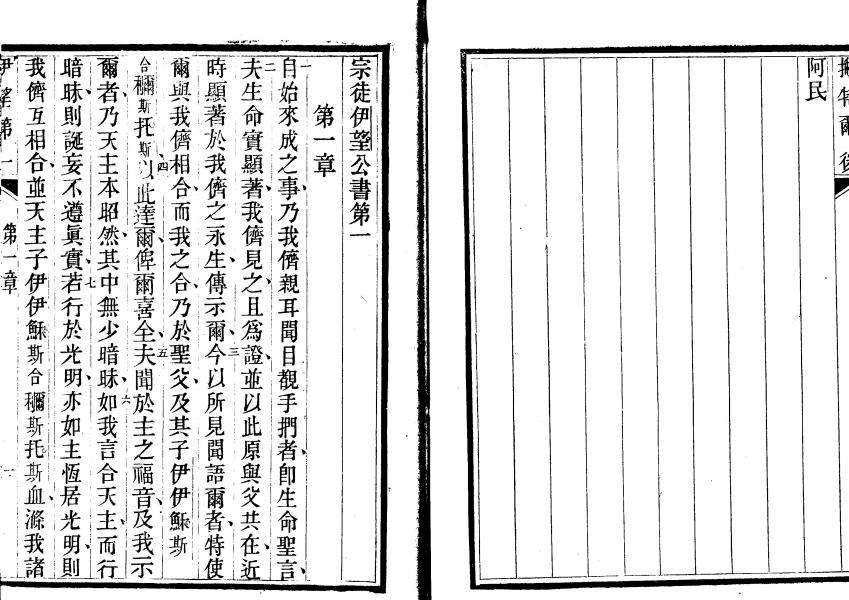 阿民
宗徒伊望公書第一
第一章
一自始來成之事、乃我儕親耳聞目覩手捫者、卽生命聖言、
二夫生命實顯著、我儕見之、且爲證、並以此原與父共在、近
時顯著於我儕之永生、傳示爾、三今以所見聞語爾者、特使
爾與我儕相合、而我之合、乃於聖父、及其子伊伊穌斯
合穪斯托斯、四以此達爾、俾爾喜全、五夫聞於主之福音、及我示
爾者、乃天主本昭然、其中無少暗昧、六如我言合天主、而行
暗昧、則誕妄不遵眞實、七若行於光明、亦如主恆居光明、則
我儕互相合、並天主子伊伊穌斯合穪斯托斯血、滌我諸
伊望第一 第一章 一